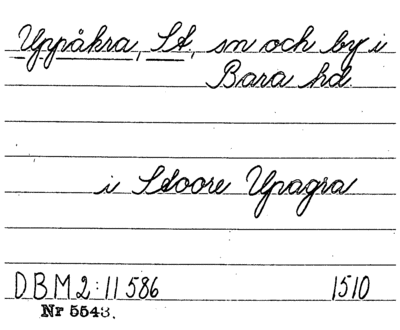 Uppåkra, St, sn och by i
Bara hd
i Stoore Upagra
DBM 2:11586 1510
Nr 5543.